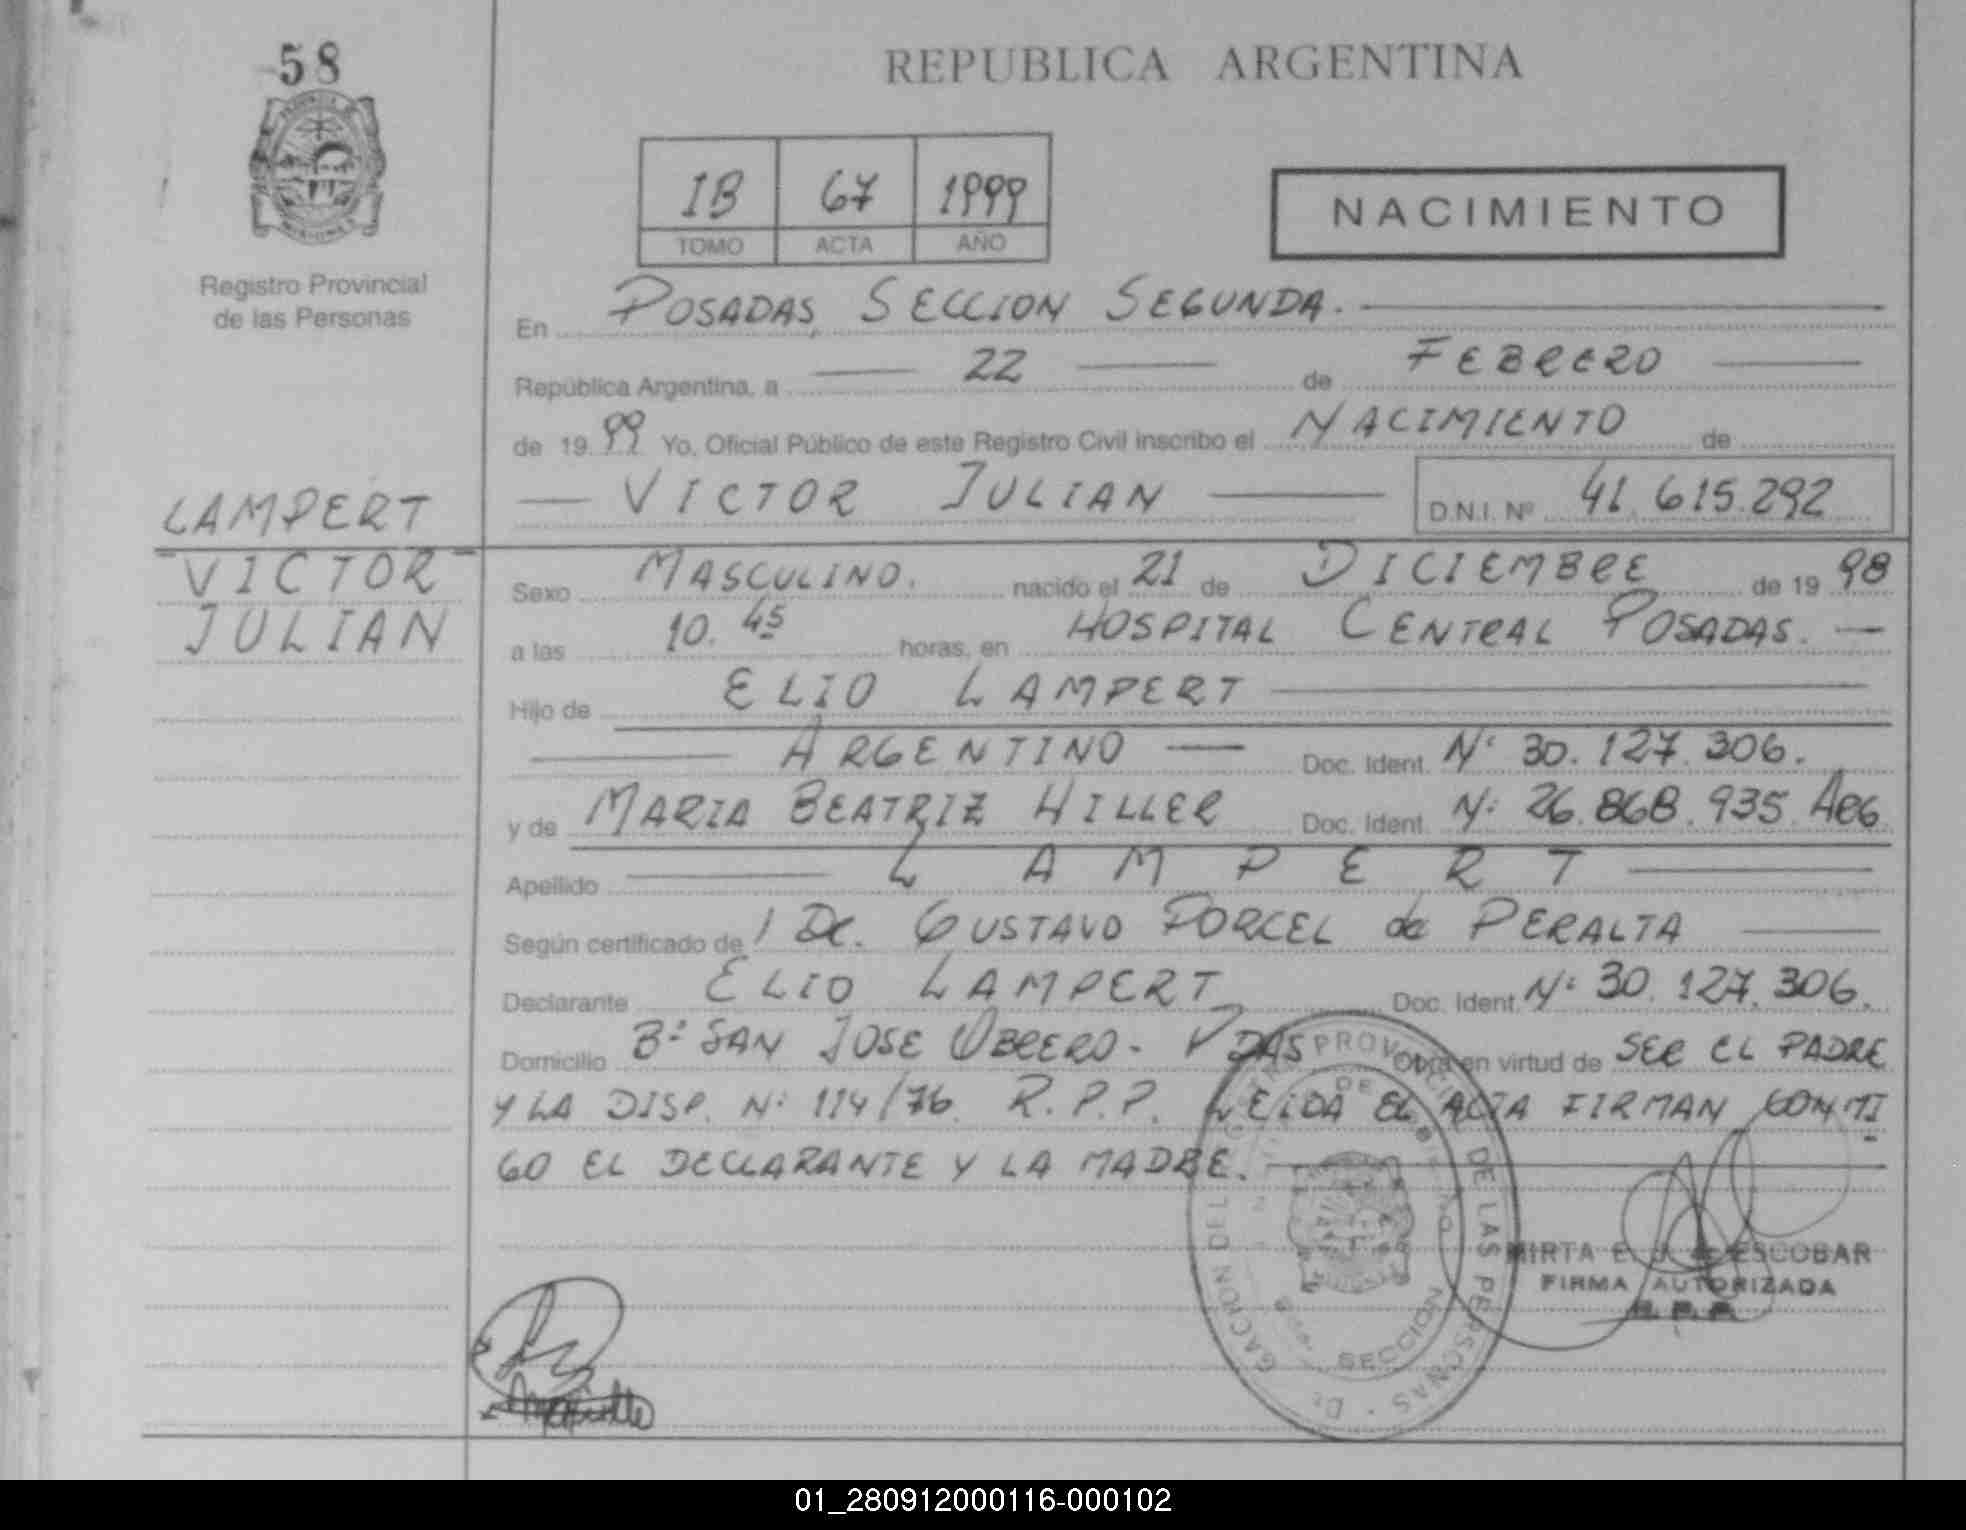 58
REPUBLICA ARGENTINA
IB 67 1999
TOMO ACTA AÑO
NACIMIENTO
Registro Provincial
de las Personas
En POSADAS, SECCION SEGUNDA.
República Argentina, a 22 de FEBRERO
de 1999 Yo, Oficial Público de este Registro Civil inscribo el NACIMIENTO de
VICTOR JULIAN D.N.I. Nº 41.615.292
LAMPERT
VICTOR
JULIAN
Sexo MASCULINO. nacido el 21 de DICIEMBRE de 1998
a las 10.45 horas, en HOSPITAL CENTRAL POSADAS.
Hijo de ELIO LAMPERT
ARGENTINO Doc. Ident. Nº 30.127.306.
y de MARIA BEATRIZ HILLER Doc. Ident. Nº 26.868.935 ARG.
Apellido LAMPERT
Según certificado de / DR. GUSTAVO PORCEL de PERALTA
Declarante ELIO LAMPERT Doc. Ident. Nº 30.127.306.
Domicilio Bº SAN JOSE OBRERO - PDAS Obra en virtud de SER EL PADRE
Y LA DISP. Nº 114/76 R.P.P. LEIDA EL ACTA FIRMAN CONMI
GO EL DECLARANTE Y LA MADRE.
MIRTA E. ESCOBAR
FIRMA AUTORIZADA
SECCION
01_280912000116-000102